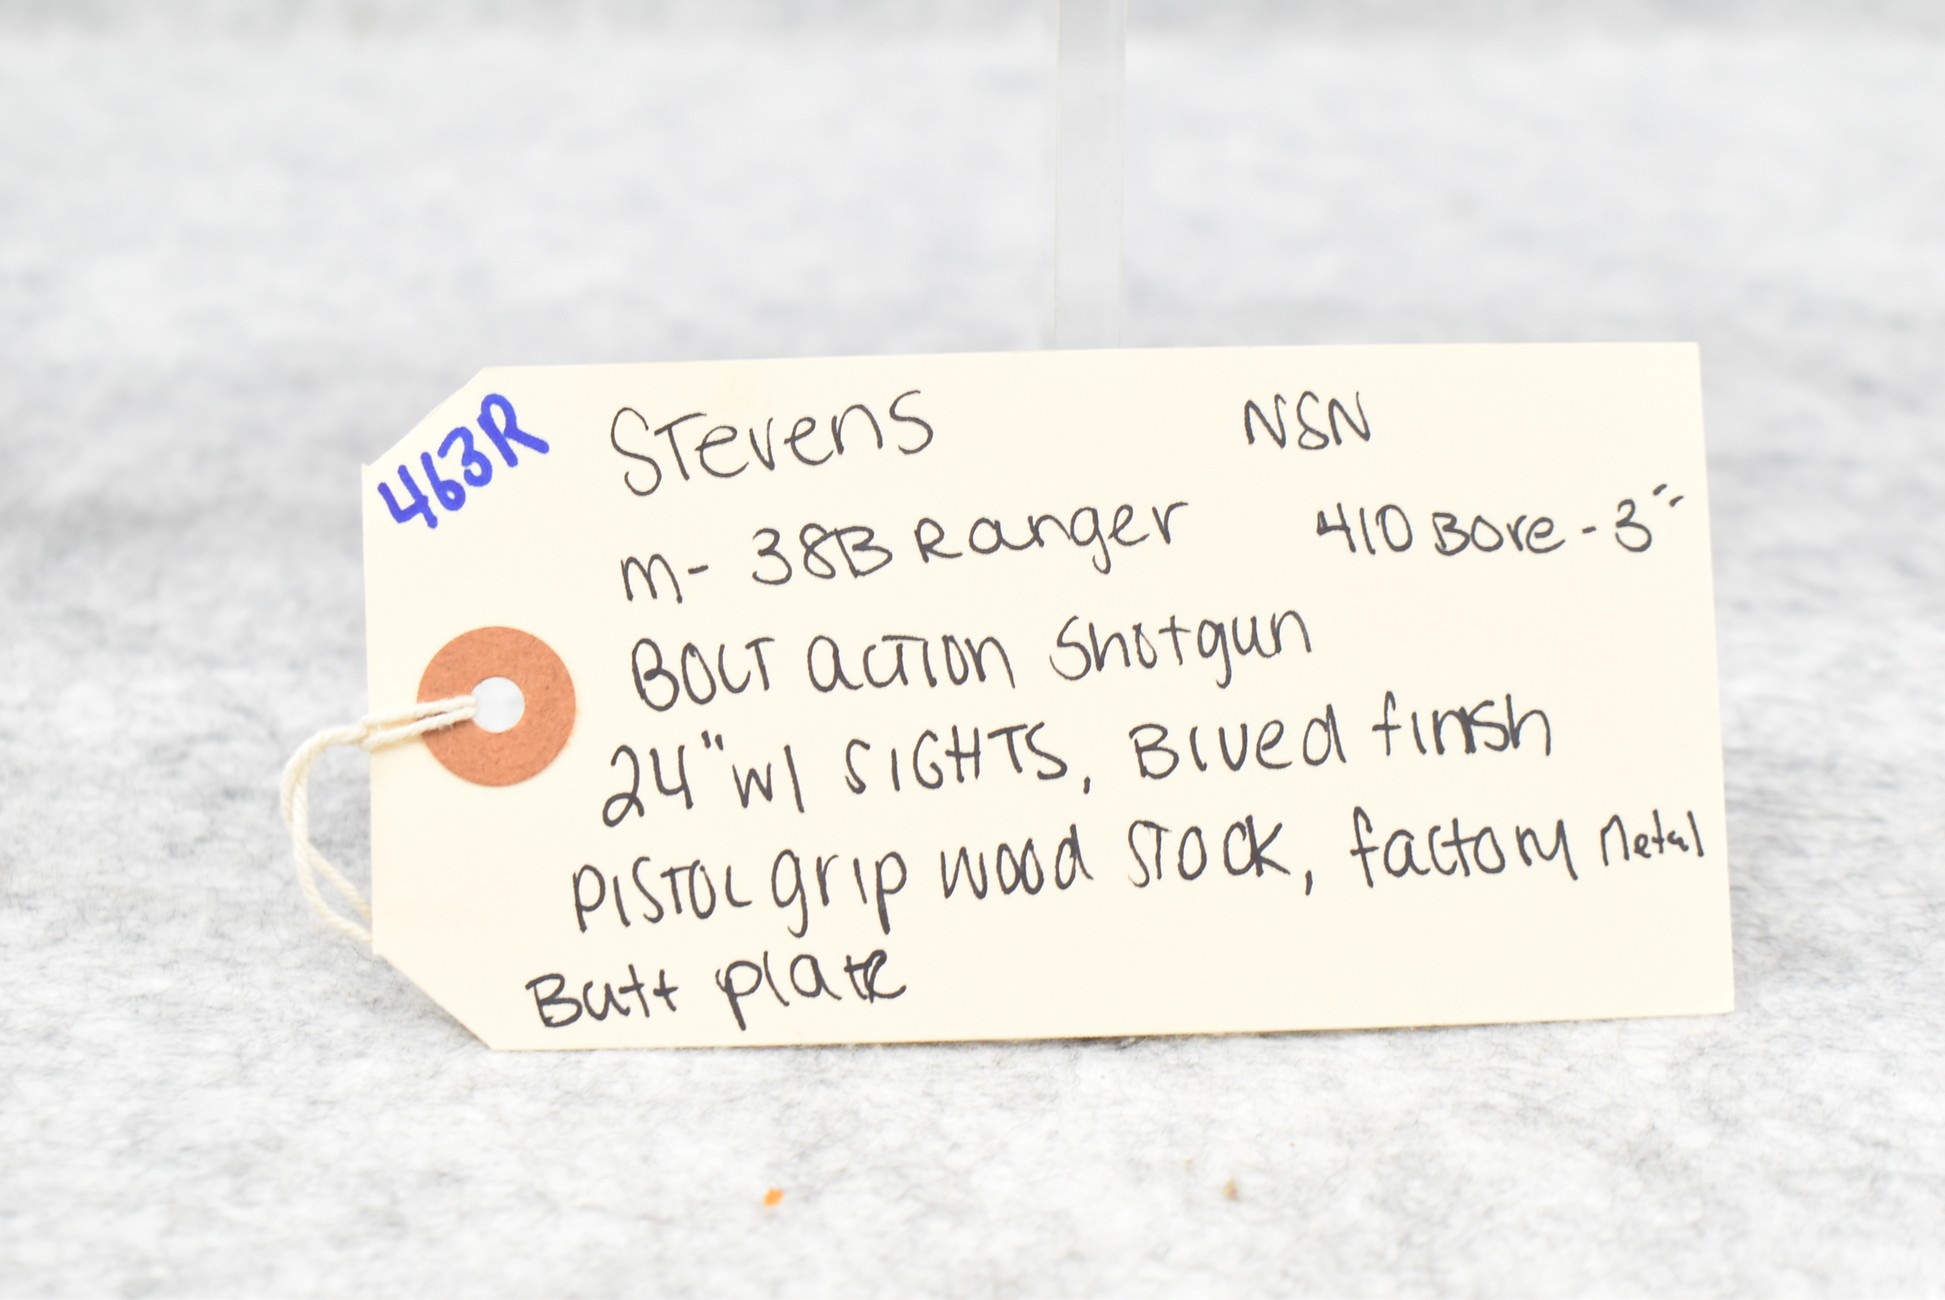 463R
Stevens NSN
M- 38B Ranger 410 Bore - 3"
BOLT action Shotgun
24" w/ SIGHTS, Blued finish
PISTOL grip wood STOCK, factory Metal
Butt plate